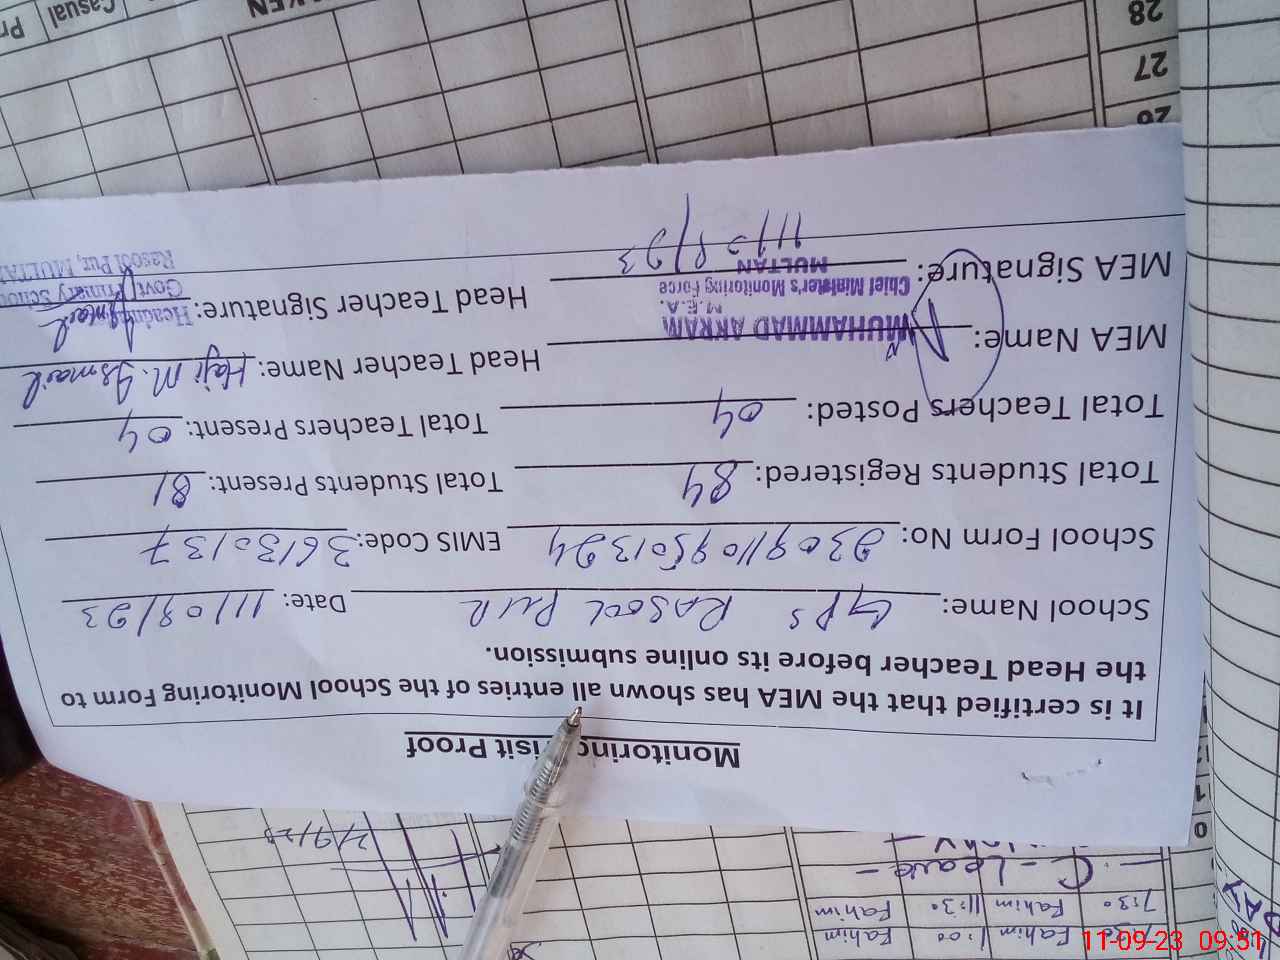 Monitoring Visit Proof
It is certified that the MEA has shown all entries of the School Monitoring Form to
the Head Teacher before its online submission.
School Name: GPS RASOOL PUR Date: 11/09/23
School Form No: 23091109501324 EMIS Code: 36130137
Total Students Registered: 84 Total Students Present: 81
Total Teachers Posted: 04 Total Teachers Present: 04
MEA Name: MUHAMMAD AKRAM Head Teacher Name: Haji M. Ismail
M.E.A.
Chief Minister's Monitoring Force
MULTAN
MEA Signature: Head Teacher Signature: Ismail
Govt. Primary School
Rasool Pur, MULTAN
26
27
28
Casual
Pr
KEN
C - Leave -
7:30 Fahim 11:30 Fahim
Fahim 1:00 Fahim
2/9/23
0
11-09-23 09:51